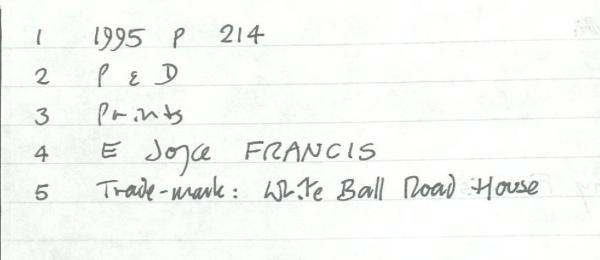 1 1995 P 214
2 P & D
3 Prints
4 E Joyce FRANCIS
5 Trade-mark: White Ball Road House